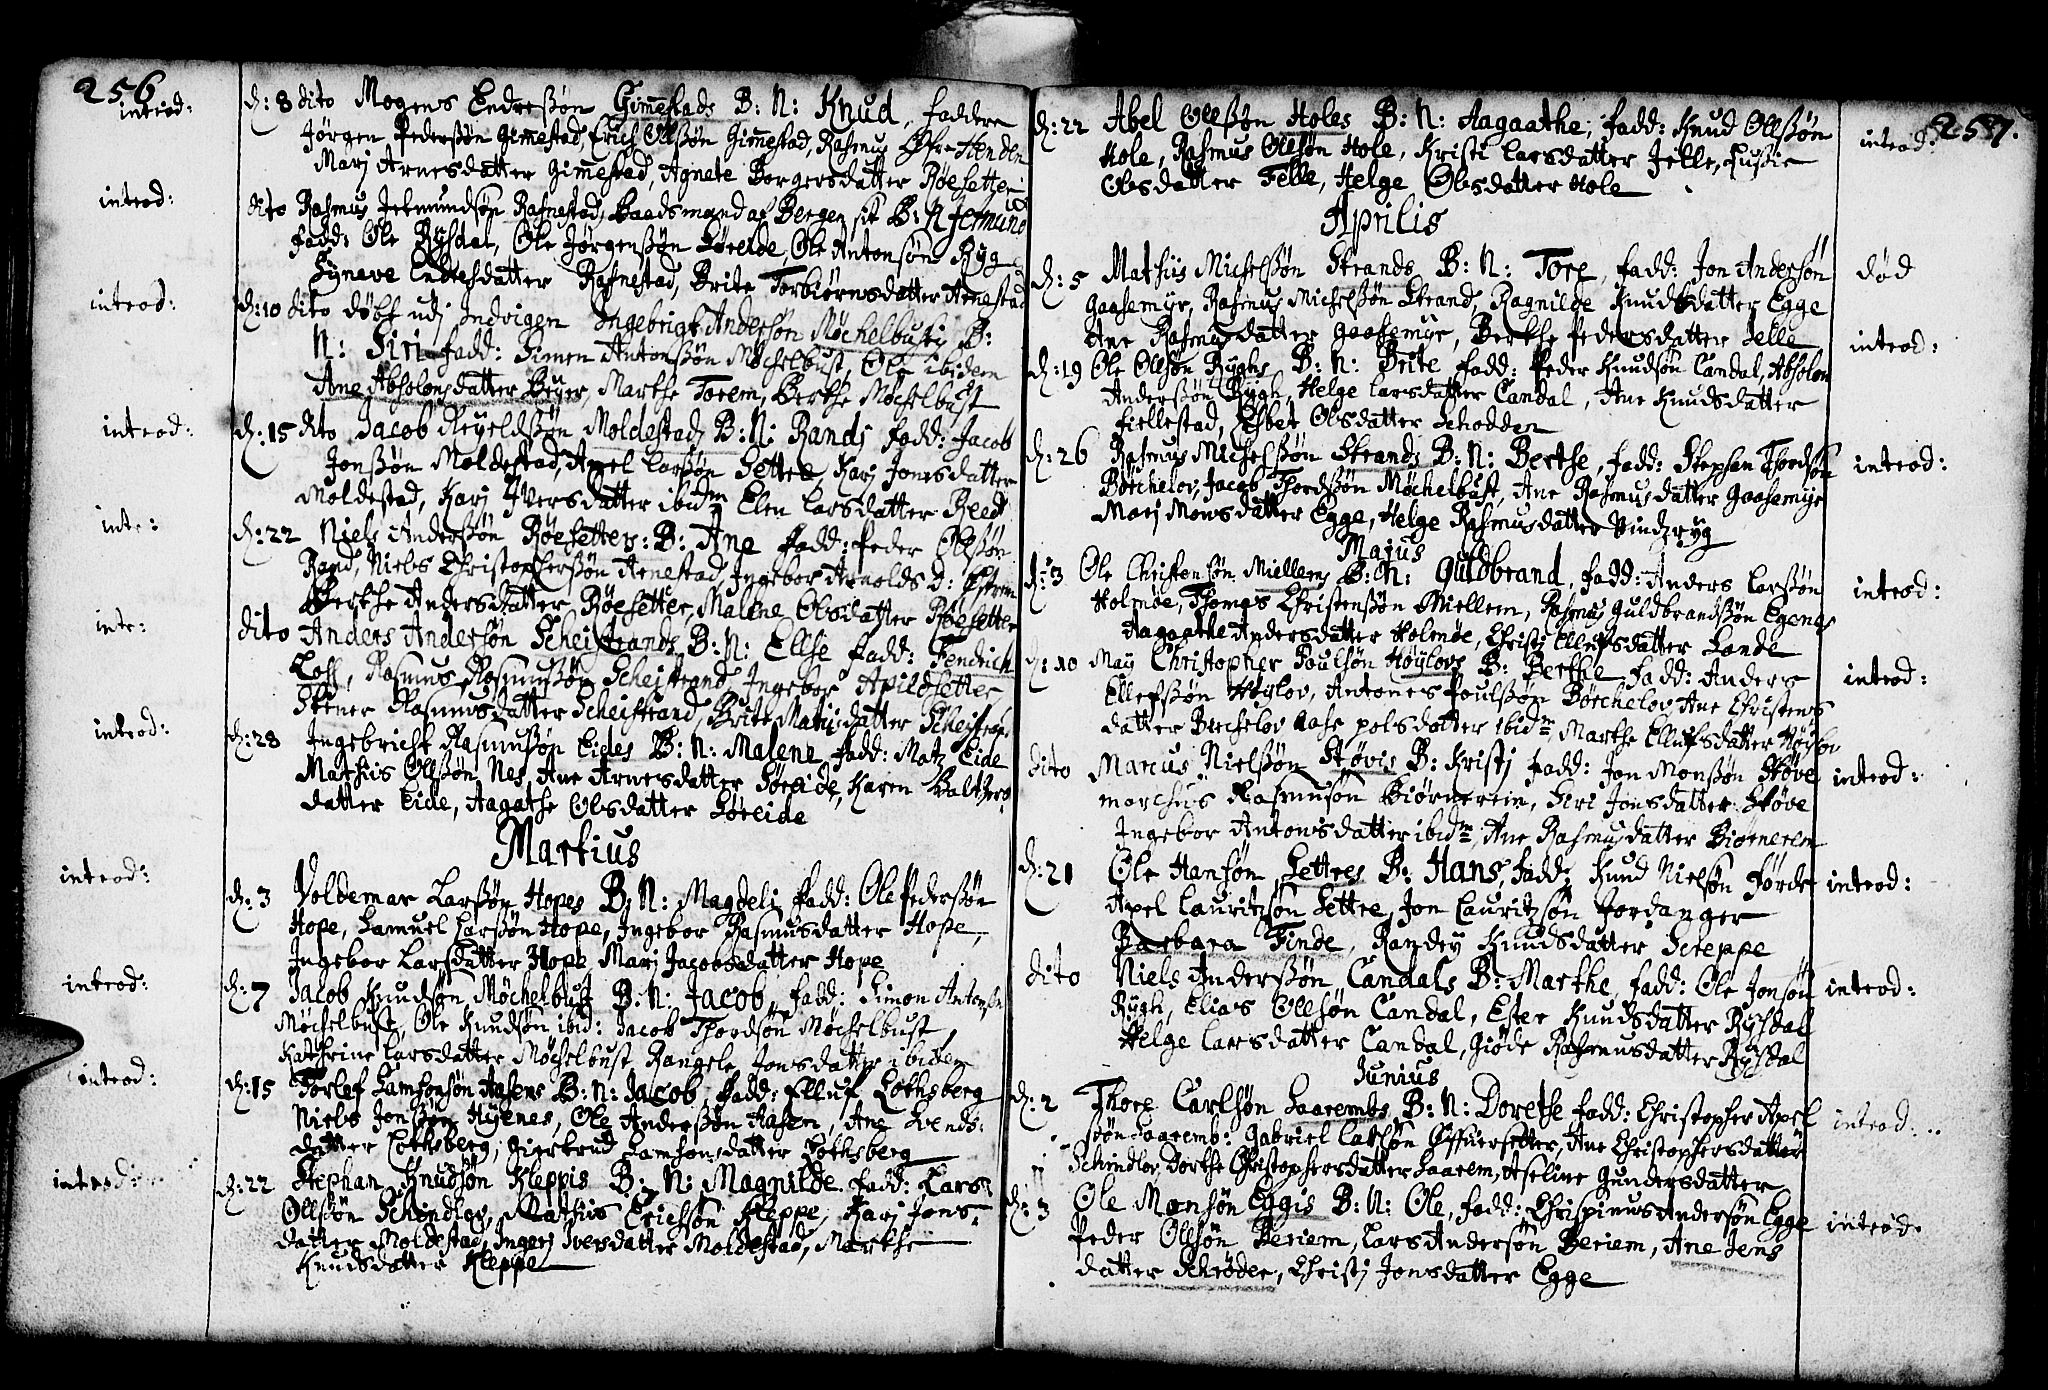 256
introd: d: 8 dito Mogens Endreßøn Gimestads B: N: Knud, faddere
Jørgen Pederßøn Gimestad, Erich Olßøn Gimestad, Rasmus Øfre Henden
Marj Arnesdatter Gimestad, Agnete Borgersdatter Røesetter
introd: dito Rasmus Jetmundsøn Rafnestad, Baadsmand af Bergen sit B: N Jetmund
fadd: Ole Rysdal, Ole Jørgenßøn Søreide, Ole Antonsøn Ryg
Synneve Endresdatter Rafnestad, Brite Torbiørnsdatter Arnestad
introd: d: 10 dito døbt udj Indvigen Ingebrigt Andersøn Møchelbusts B:
N: Siri fadd: Simen Antonßøn Møchelbust, Ole ibidem
Ane Absolonsdatter Beyer, Marthe Torem, Berthe Møchelbust
introd: d: 15 dito Jacob Reyeldßøn Moldestads B: N: Randj fadd: Jacob
Jonßøn Moldestad, Axel Larßøn Settre, Karj Jonesdatter
Moldestad, Karj Iversdatter ibidm Elen Larsdatter Reed
int: d: 22 Niels Anderßøn Røesetters: B: Ane fadd: Peder Olßøn
Rand, Niels Christopherßøn Arnestad, Ingebor Arnolds D:
Berthe Andersdatter Røesetter, Malene Olsdatter Røesetter
intr: dito Anders Andersøn Scheistrands B: N: Ellse fadd: Fendrich
Coss, Rasmus Rasmusßøn Scheistrand, Ingebor Apildsetter
Stener Rasmusdatter Scheistrand, Brite Matiisdatter Scheistrand
introd: d: 28 Ingebricht Rasmußøn Eides B: N: Malene, fadd: Matz Eide
Mathis Olßøn Nes, Ane Arnesdatter Søreide, Karen Baltzers
datter Eide, Aagathe Olsdatter Søreide
Martius
introd: d: 3 Voldemar Larßøn Hopes B: N: Magdeli fadd: Ole Pederßøn
Hope, Samuel Larßøn Hope, Ingebor Rasmusdatter Hope,
Ingebor Larsdatter Hope, Marj Jacobsdatter Hope
introd: d: 7 Jacob Knudsøn Møchelbust B: N: Jacob, fadd: Simon Antonsøn
Møchelbust, Ole Knudsøn ibid: Jacob Thordsøn Møchelbust,
Kathrine Larsdatter Møchelbust, Rangele Jonsdatter ibidem
introd: d: 15 Torlef Samsonsøn Aasens B: N: Jacob, fadd: Elluf Lothsberg
Niels Jonßøn Hyenes, Ole Anderßøn Aasen, Ane Svends:
datter Lothsberg, Giertrud Samsonsdatter Lothsberg
introd: d: 22 Stephan Knudsøn Kleppis B: N: Magnilde fadd: Lars
Ollsøn Schindlov, Mathiis Erichsøn Kleppe, Karj Jons:
datter Moldestad, Ingerj Iversdatter Moldestad, Marthe
Knudsdatter Kleppe
257.
d: 22 Abel Olleßøn Holes B: N: Aagaathe, fadd: Knud Ollßøn introd:
Hole, Rasmus Ollsøn Hole, Kristi Larsdatter Jelle,
Olsdatter Felle, Helge Olsdatter Hole
Aprilis
d: 5 Mathiis Michelßøn Strands B: N: Tore, fadd: Jon Andersøn død
Gaasemyr, Rasmus Michelßøn Strand, Ragnilde Knudsdatter Egge
Ane Rasmusdatter Gaasemyr, Berthe Pedersdatter Jelle
d: 19 Ole Ollsøn Ryghs B: N: Brite fadd: Peder Knudsøn Candal, Absolon introd:
Anderßøn Rygh, Helge Larsdatter Candal, Ane Knudsdatter
Fiellestad, Lisbet Olsdatter Schodden
d: 26 Rasmus Michelßøn Strands B: N: Berthe, fadd: Stephan Thordsøn introd:
Børchelov, Jacob Thordßøn Møchelbust, Ane Rasmusdatter Gaasemyr
Marj Monsdatter Egge, Helge Rasmusdatter Vindzryg
Majus
d: 3 Ole Christensøn Miellems B: N: Guldbrand, fadd: Anders Larßøn introd:
Holmøe, Thomas Christenßøn Miellem, Rasmus Guldbrandßøn Egenes
Aagaathe Andersdatter Holmøe, Christj Ellufsdatter Lande
d: 10 May Christopher Poulsøn Høylovs B: Berthe fadd: Anders introd:
Ellefßøn Høylov, Antones Poulßøn Børchelov, Ane Christens
datter Berchelov Aase polsdatter ibidm, Marthe Ellufsdatter Høylov
dito Marcus Nielßøn Støvis B: Kristj fadd: Jon Monßøn Støve introd:
marchus Rasmusøn Biørnerein, Siri Jonsdatter Støve
Ingebor Antonsdatter ibidm, Ane Rasmusdatter Biørnerem
d: 21 Ole Hansøn Settres B: Hans, fadd: Knud Nielsøn Førde introd:
Axel Lauritzsøn Settre, Jon Lauritzsøn Hordanger
Barbara Finde, Randey Knudsdatter Screppe
dito Niels Anderßøn Candals B: Marthe, fadd: Ole Jonsøn introd:
Rygh, Elias Ollsøn Candal, Ester Knudsdatter Rysdal
Helge Larsdatter Candal, Giøde Rasmusdatter Rysdal
Junius
d: 2 Thore Carlsøn Saarembs B: N: Dorethe fadd: Christopher Axel introd:
søn Saaremb: Gabriel Larsøn Øffuersetter, Ane Christophersdatter
Schindlov, Dorthe Christophersdatter Saarem, Aseline Gundersdatter
d: 3 Ole Monsøn Eggis B: N: Ole, fadd: Chrispinus Andersøn Egge introd:
Peder Ollsøn Heriem, Lars Andersøn Heriem, Ane Jens
datter Schrøder, Christj Jonsdatter Egge